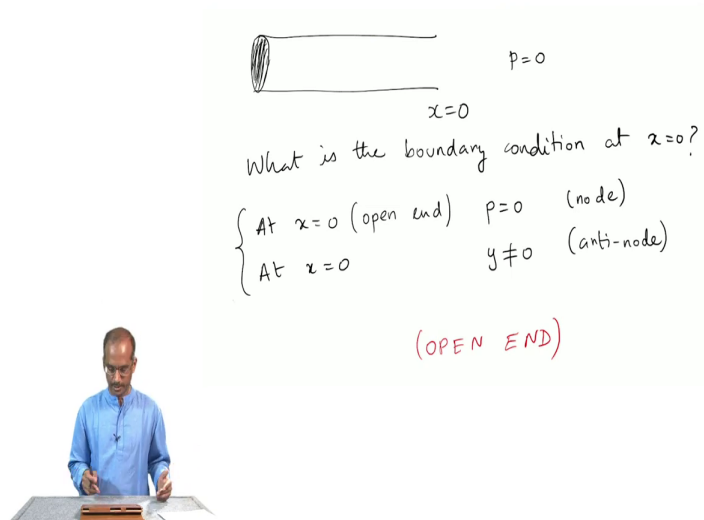 p=0
x=0
What is the boundary condition at x=0?
At x=0 (open end) p=0 (node)
At x=0 y≠0 (anti-node)
(OPEN END)